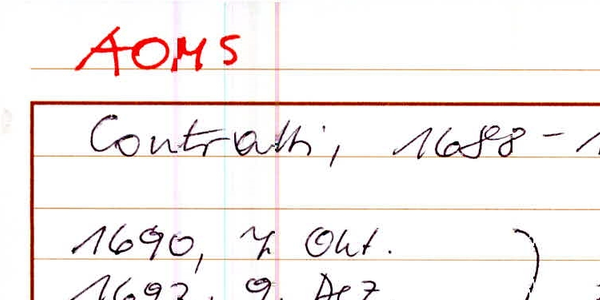 AOMS
Contratti, 1688 - 1
1690, 7 Okt.
1692, 9. Dez